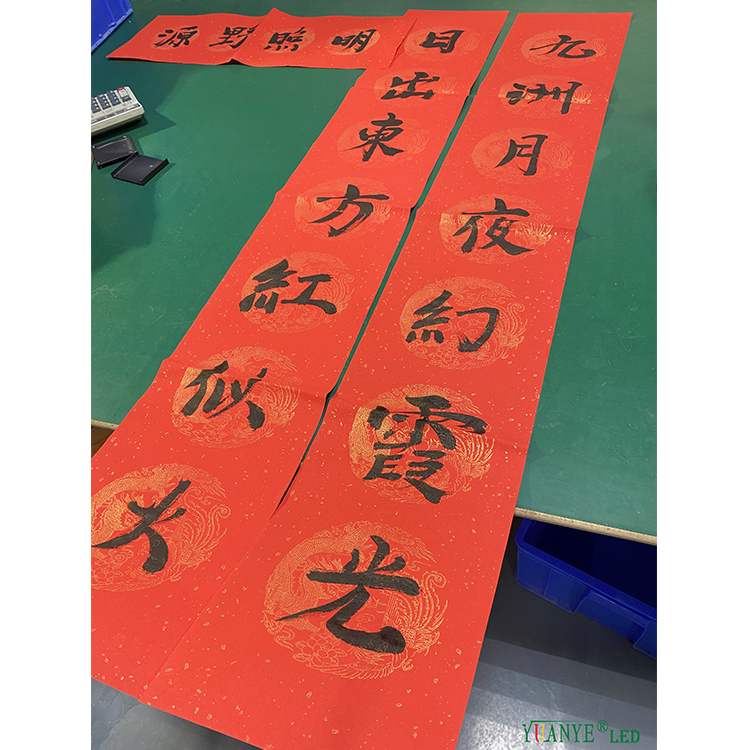 源野照明
九洲月夜幻霞光
日出東方紅似火
YUANYE®LED